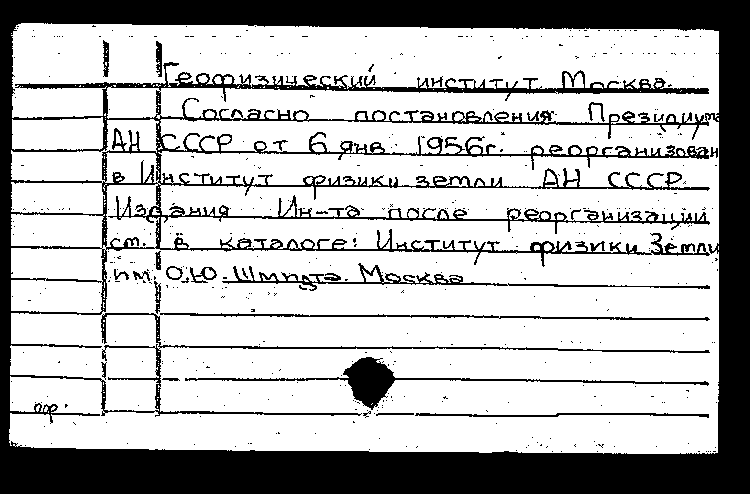 Геофизический институт. Москва.
Согласно постановления Президиума
АН СССР от 6 янв. 1956г. реорганизован
в Институт физики земли АН СССР.
Издания Ин-та после реорганизации
см. в каталоге: Институт физики Земли
им. О.Ю. Шмидта. Москва.